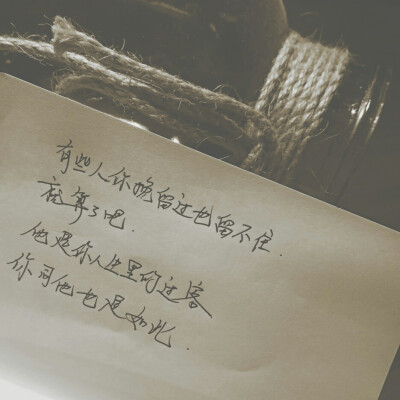 有些人你挽留过也留不住.
就算了吧.
他是你人生里的过客
你同他也是如此.